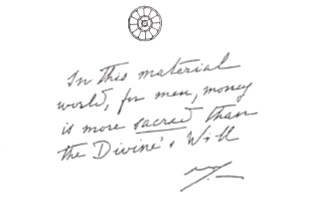 In this material
world, for men, money
is more sacred than
the Divine's Will